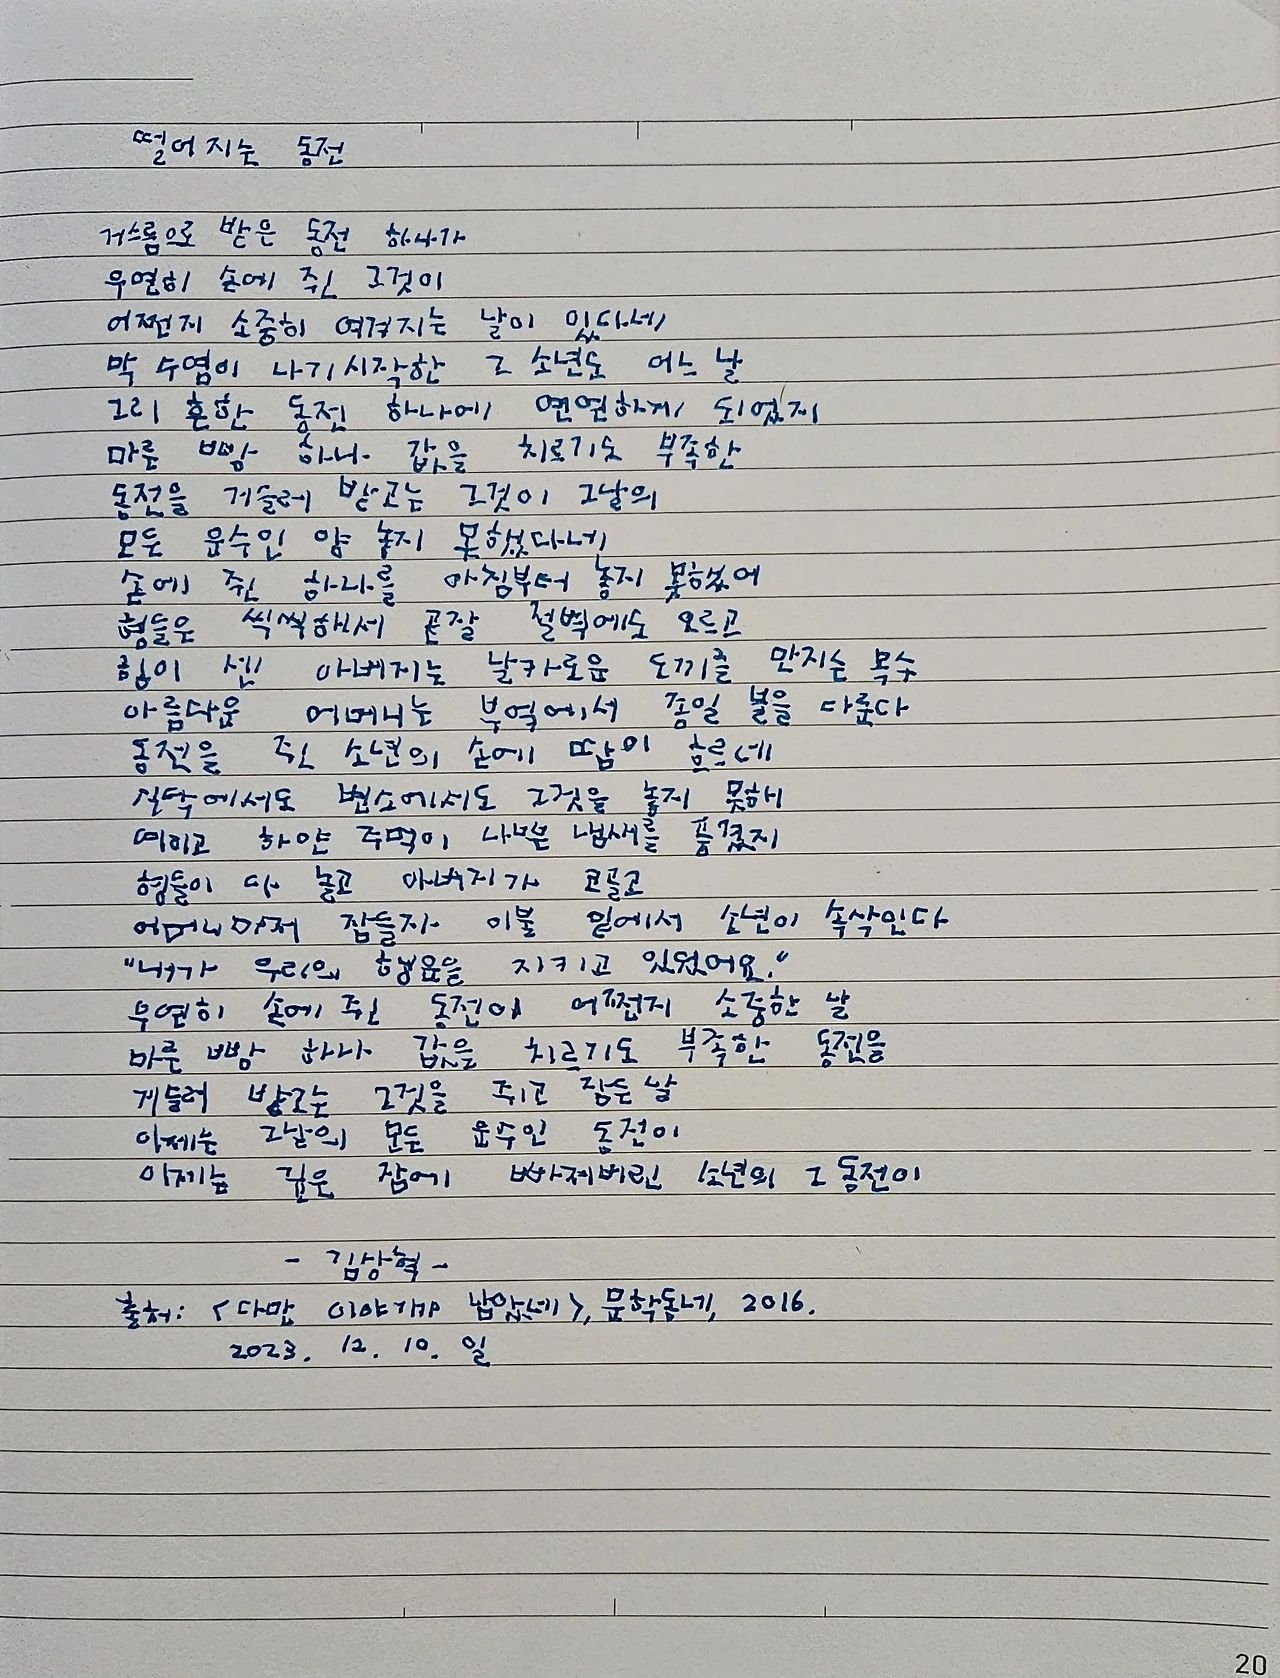 떨어지는 동전
거스름으로 받은 동전 하나가
우연히 손에 쥔 그것이
어쩐지 소중히 여겨지는 날이 있다네
막 수염이 나기 시작한 그 소년도 어느 날
그리 흔한 동전 하나에 연연하게 되었지
마른 빵 하나 값을 치르기도 부족한
동전을 거슬러 받고는 그것이 그날의
모든 운수인 양 놓지 못했다네
손에 쥔 하나를 아침부터 놓지 못했어
형들은 씩씩해서 곧잘 절벽에도 오르고
힘이 센 아버지는 날카로운 도끼를 만지는 목수
아름다운 어머니는 부엌에서 종일 불을 다룬다
동전을 쥔 소년의 손에 땀이 흐르네
식탁에서도 변소에서도 그것을 놓지 못해
여리고 하얀 주먹이 나쁜 냄새를 풍겼지
형들이 다 놀고 아버지가 코골고
어머니마저 잠들자 이불 밑에서 소년이 속삭인다
"내가 우리의 행운을 지키고 있었어요."
우연히 손에 쥔 동전이 어쩐지 소중한 날
마른 빵 하나 값을 치르기도 부족한 동전을
거슬러 받고는 그것을 쥐고 잠든 날
이제는 그날의 모든 운수인 동전이
이제는 깊은 잠에 빠져버린 소년의 그 동전이
- 김상혁 -
출처: <다만 이야기가 남았네>, 문학동네, 2016.
2023. 12. 10. 일
20